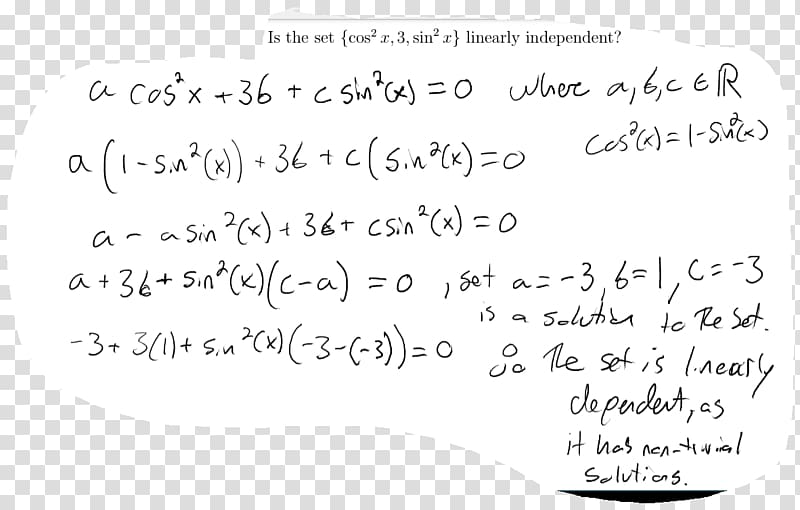 Is the set {cos² x, 3, sin² x} linearly independent?
a cos²x + 3b + c sin²(x) = 0 where a, b, c ∈ ℝ
cos²(x) = 1 - sin²(x)
a(1 - sin²(x)) + 3b + c(sin²(x) = 0
a - a sin²(x) + 3b + c sin²(x) = 0
a + 3b + sin²(x)(c - a) = 0, set a = -3, b = 1, c = -3
is a solution to the set.
-3 + 3(1) + sin²(x)(-3 - (-3)) = 0 ∴ the set is linearly
dependent, as
it has non-trivial
solutions.